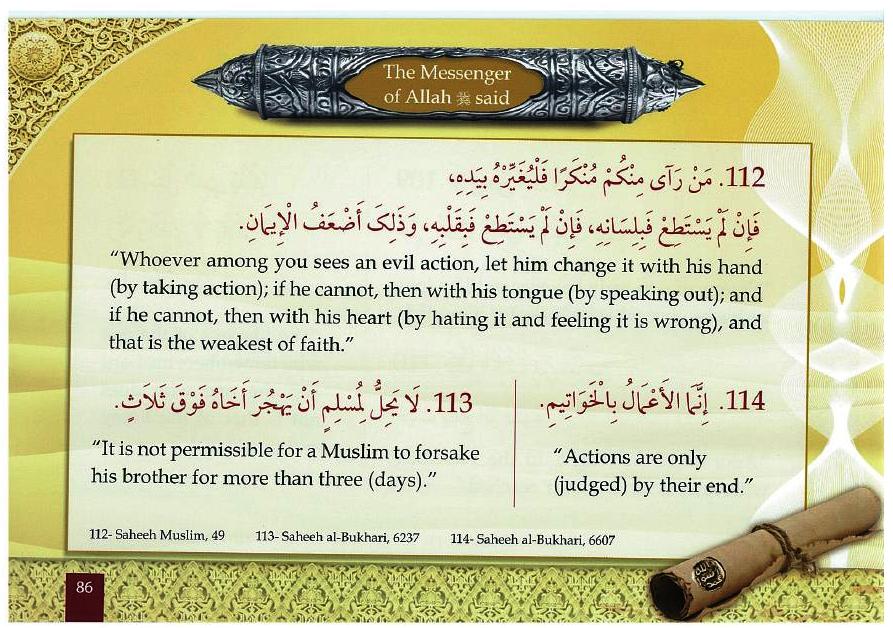 The Messenger
of Allah ﷺ said
112. مَنْ رَآى مِنْكُمْ مُنْكَرًا فَلْيُغَيِّرْهُ بِيَدِهِ،
فَإِنْ لَمْ يَسْتَطِعْ فَبِلِسَانِهِ، فَإِنْ لَمْ يَسْتَطِعْ فَبِقَلْبِهِ، وَذَلِكَ أَضْعَفُ الْإِيمَانِ.
“Whoever among you sees an evil action, let him change it with his hand
(by taking action); if he cannot, then with his tongue (by speaking out); and
if he cannot, then with his heart (by hating it and feeling it is wrong), and
that is the weakest of faith.”
113. لَا يَحِلُّ لِمُسْلِمٍ أَنْ يَهْجُرَ أَخَاهُ فَوْقَ ثَلَاثٍ.
“It is not permissible for a Muslim to forsake
his brother for more than three (days).”
114. إِنَّمَا الأَعْمَالُ بِالْخَوَاتِيمِ.
“Actions are only
(judged) by their end.”
112- Saheeh Muslim, 49 113- Saheeh al-Bukhari, 6237 114- Saheeh al-Bukhari, 6607
الله
رسول
محمد
86